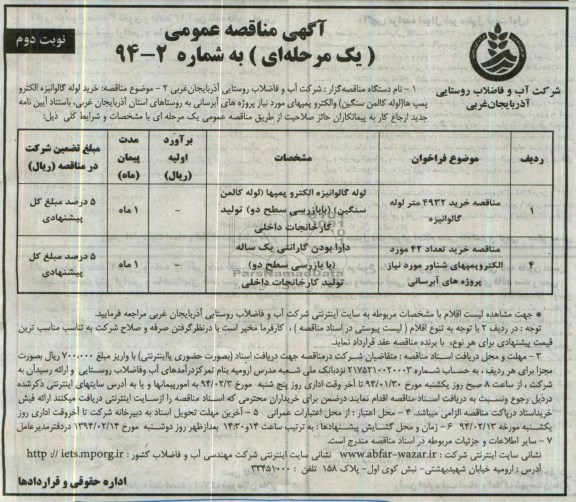 آگهی مناقصه عمومی
( یک مرحله‌ای ) به شماره ۲-۹۴
نوبت دوم
شرکت آب و فاضلاب روستایی
آذربایجان‌غربی
۱ - نام دستگاه مناقصه‌گزار : شرکت آب و فاضلاب روستایی آذربایجان‌غربی ۲ - موضوع مناقصه: خرید لوله گالوانیزه الکترو
پمپ ها(لوله کالمن سنگین) والکترو پمپهای مورد نیاز پروژه های آبرسانی به روستاهای استان آذربایجان غربی، باستناد آیین نامه
جدید ارجاع کار به پیمانکاران حائز صلاحیت از طریق مناقصه عمومی یک مرحله ای با مشخصات و شرایط کلی ذیل:
ردیف | موضوع فراخوان | مشخصات | برآورد اولیه (ریال) | مدت پیمان (ماه) | مبلغ تضمین شرکت در مناقصه (ریال)
۱ | مناقصه خرید ۴۹۳۲ متر لوله گالوانیزه | لوله گالوانیزه الکترو پمپها (لوله کالمن سنگین) (بابازرسی سطح دو) تولید کارخانجات داخلی | - | ۱ ماه | ۵ درصد مبلغ کل پیشنهادی
۴ | مناقصه خرید تعداد ۴۲ مورد الکتروپمپهای شناور مورد نیاز پروژه های آبرسانی | دارا بودن گارانتی یک ساله (با بازرسی سطح دو) تولید کارخانجات داخلی | - | ۱ ماه | ۵ درصد مبلغ کل پیشنهادی
ParsNamadData
* جهت مشاهده لیست اقلام با مشخصات مربوطه به سایت اینترنتی شرکت آب و فاضلاب روستایی آذربایجان غربی مراجعه فرمایید.
توجه : در ردیف ۲ با توجه به تنوع اقلام ( لیست پیوستی در اسناد مناقصه ) ، کارفرما مخیر است با درنظرگرفتن صرفه و صلاح شرکت به تناسب مناسب ترین
قیمت پیشنهادی برای هر نوع، با برنده مناقصه عقد قرارداد نماید.
۳ - مهلت و محل دریافت اسناد مناقصه : متقاضیان شرکت درمناقصه جهت دریافت اسناد (بصورت حضوری یااینترنتی) با واریز مبلغ ۷۰۰،۰۰۰ ریال بصورت
مجزا برای هر ردیف ، به حساب شماره ۲۱۷۵۲۱۰۰۲۰۰۰۲ نزدبانک ملی شعبه مدرس ارومیه بنام تمرکزدرآمدهای آب وفاضلاب روستایی و ارائه رسیدان به
شرکت ، از ساعت ۸ صبح روز یکشنبه مورخ ۹۴/۰۱/۳۰ تا آخر وقت اداری روز پنج شنبه مورخ ۹۴/۰۲/۳ به امورپیمانها و یا به آدرس سایتهای اینترنتی ذکرشده
درذیل رجوع ونسبت به دریافت اسناد مناقصه اقدام نمایند درضمن برای خریداران محترمی که اسناد مناقصه را ازسایت اینترنتی دریافت میکنند ارائه فیش
خریداسناد دریاکت مناقصه الزامی میباشد. ۴ - محل اعتبار : از محل اعتبارات عمرانی ۵ - آخرین مهلت تحویل اسناد به دبیرخانه شرکت تا آخروقت اداری روز
یکشنبه مورخه ۹۴/۰۲/۱۳ ۶ - زمان و محل گشایش پیشنهادها : به ترتیب ساعت ۱۴و۱۴:۳۰ بعدازظهر روز دوشنبه مورخ ۱۳۹۴/۰۲/۱۴ دردفترمدیرعامل
۷ - سایر اطلاعات و جزئیات مربوطه در اسناد مناقصه مندرج است.
نشانی سایت اینترنتی شرکت : www.abfar-wazar.ir نشانی سایت اینترنتی شرکت مهندسی آب و فاضلاب کشور : http :// iets.mporg.ir
آدرس : ارومیه خیابان شهیدبهشتی- نبش کوی اول- پلاک ۱۵۸ تلفن : ۳۳۴۵۱۰۰۰
اداره حقوقی و قراردادها